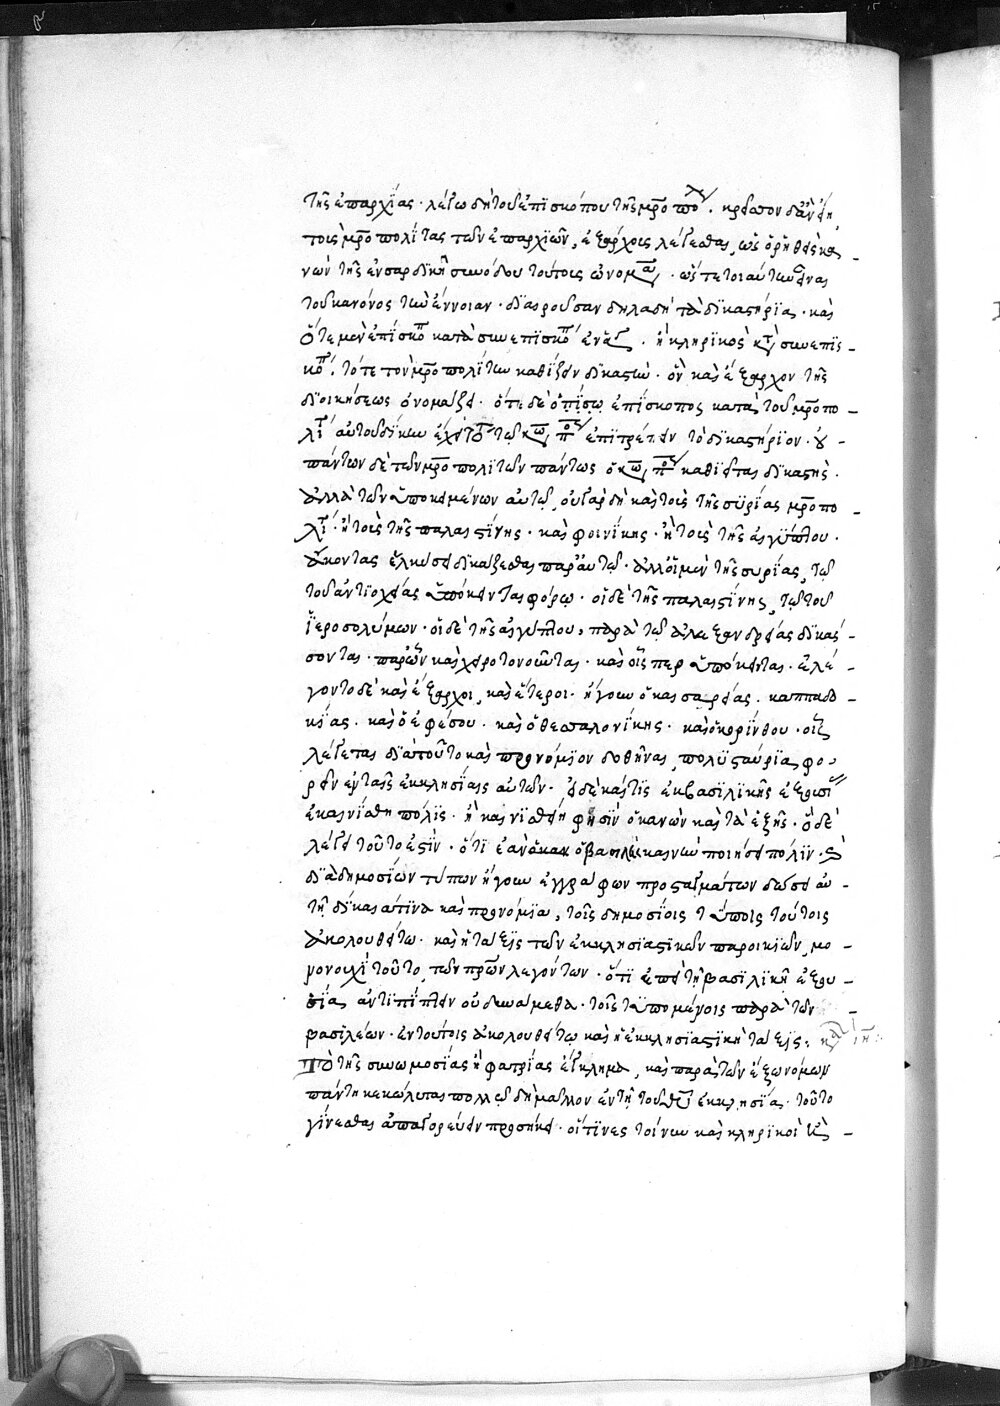 τῆς ἐπαρχίας · λέγω δὴ τοῦ ἐπισκόπου τῆς μρο πο λ · κρεῖττον δ' ἂν εἴη
τοὺς μροπολίτας τῶν ἐπαρχιῶν, ἐξάρχους λέγεσθαι, ὡς ὁ ῥηθεὶς κα
νὼν τῆς ἐν σαρδικῇ συνόδου τούτους ὠνομα · ὥστε τοιαύτην εἶναι
τοῦ κανόνος τὴν ἔννοιαν · διαιροῦσαν δηλαδὴ τὰ δικαστήρια · καὶ
ὅτε μὲν ἐπίσκοπ κατὰ συνεπισκοπ · ἢ κληρικὸς κτ συνεπισ
κοπ, τότε τὸν μροπολίτην καθίζειν δικαστὴν · ὃν καὶ ἔξαρχον τῆς
διοικήσεως ὀνομάζει · ὅτε δὲ ἐπίσκοπος κατὰ τοῦ μροπο
λι αὐτοῦ δίκην τῷ κω π ἐπιτρέπειν τὸ δικαστήριον · οὐ
πάντων δὲ τῶν μροπολιτῶν πάντως ὁ κω π καθιεῖται δικαστής ·
ἀλλὰ τῶν ὑποκειμένων αὐτῷ, οὐ γὰρ δὴ καὶ τοὺς τῆς συρίας μροπο
λι · ἢ τοὺς τῆς παλαιστίνης · καὶ φοινίκης · ἢ τοὺς τῆς αἰγύπτου ·
ἄκοντας ἑλκύσει δικάζεσθαι παρ' αὐτῷ · ἀλλ' οἱ μὲν τῆς συρίας, τῷ
τοῦ ἀντιοχείας ὑπόκεινται φόρῳ · οἱ δὲ τῆς παλαιστίνης, τῷ τοῦ
ἱεροσολύμων · οἱ δὲ τῆς αἰγύπτου, παρὰ τῷ ἀλεξανδρείας δικάσ
σονται · παρ' ὧν καὶ χειροτονοῦνται · καὶ οἷς περ ὑπόκεινται · ἐλέ
γοντο δὲ καὶ ἔξαρχοι, καὶ ἕτεροι · ἤγουν ὁ καισαρείας · καππαδο
κίας · καὶ ὁ ἐφέσου · καὶ ὁ θεσσαλονίκης · καὶ ὁ κορίνθου · οἷς
λέγεται διὰ τοῦτο καὶ προνόμιον δοθῆναι, πολυσταύρια φο
ρεῖν ἐν ταῖς ἐκκλησίαις αὐτῶν · εἰ δὲ καί τις ἐκ βασιλικῆς ἐξουσι
ἐκαινίσθη πόλις · ἢ καινισθείη φησὶν ὁ κανὼν καὶ τὰ ἑξῆς · ὃ δὲ
λέγει τοῦτό ἐστιν · ὅτι ἐὰν ὁ βασιλεὺς καινὴν ποιήσει πόλιν ·
διὰ δημοσίων τύπων ἤγουν ἐγγράφων προσταγμάτων δώσει αὐ
τῇ δίκαια τινὰ καὶ προνόμια, τοῖς δημοσίοις τύποις τούτοις
ἀκολουθείτω · καὶ ἡ τάξις τῶν ἐκκλησιαστικῶν παροικιῶν, μο
νονουχὶ τοῦτο τῶν πρων λεγόντων · ὅτι ἐπεὶ τῇ βασιλικῇ ἐξου
σίᾳ ἀντιπίπτειν οὐ δυνάμεθα · τοῖς τυπουμένοις παρὰ τῶν
βασιλέων · ἐν τούτοις ἀκολουθείτω καὶ ἡ ἐκκλησιαστικὴ τάξις
Τὸ τῆς συνωμοσίας ἢ φατρίας ἔγκλημα, καὶ παρὰ τῶν ἔξω νόμων
πάντη κεκώλυται πολλῷ δὴ μᾶλλον ἐν τῇ τοῦ θυ ἐκκλησίᾳ · τοῦτο
γίνεσθαι ἀπαγορεύειν προσήκει · οἵτινες τοίνυν καὶ κληρικοὶ